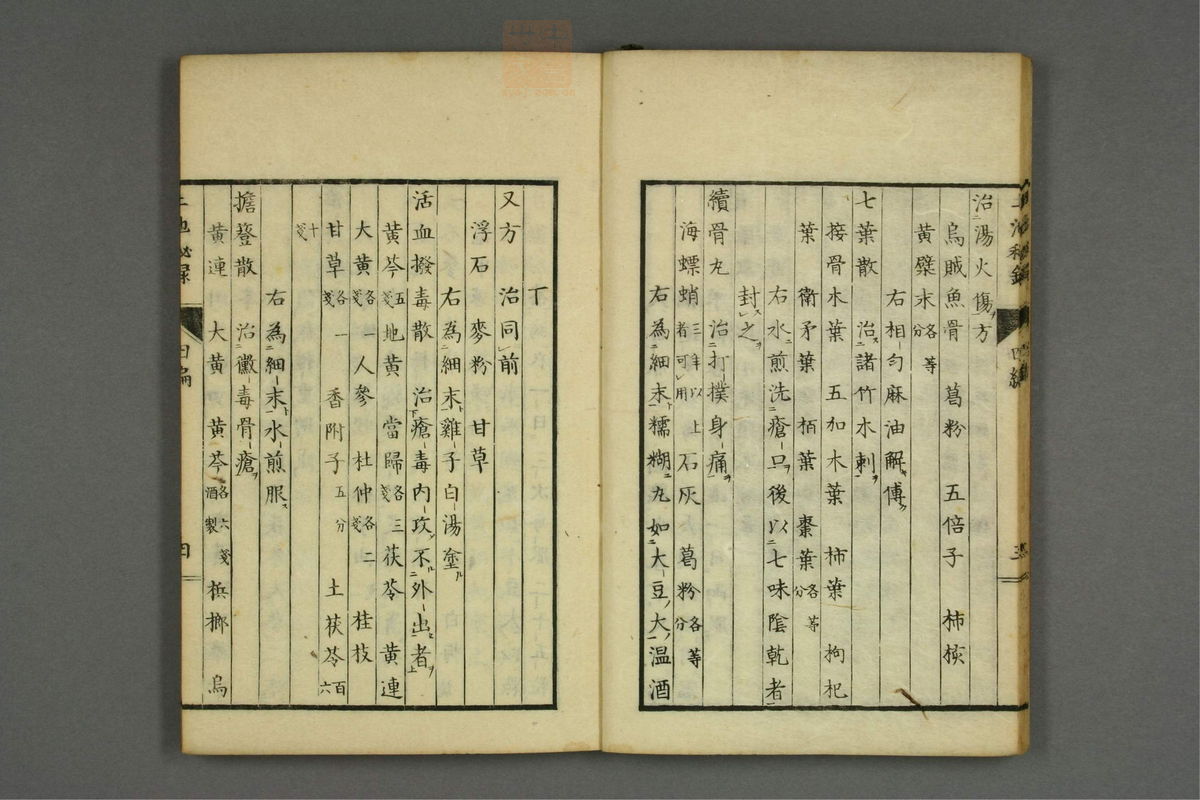 治湯火傷方
烏賊魚骨 葛粉 五倍子 柿核
黄蘗末各等分
右相勻麻油解傅
七葉散 治諸竹木刺
接骨木葉 五加木葉 柿葉 拘杞
葉 衛矛葉 栢葉 棗葉各等分
右水煎洗瘡口後以七味陰乾者
封之
續骨丸 治打撲身痛
海螵蛸三年以上者可用 石灰 葛粉各等分
右為細末糯糊丸如大豆大温酒
下
又方 治同前
浮石 麥粉 甘草
右為細末雞子白湯塗
活血撥毒散 治瘡毒内攻不外出者
黄芩五戔 地黄 當歸各三戔 茯苓 黄連
大黄各一戔 人參 杜仲各二戔 桂枝
甘草各一戔 香附子五分 土茯苓百六
十戔
右為細末水煎服
擔登散 治黴毒骨瘡
黄連 大黄 黄芩各六戔酒製 梹榔 烏
四編
四